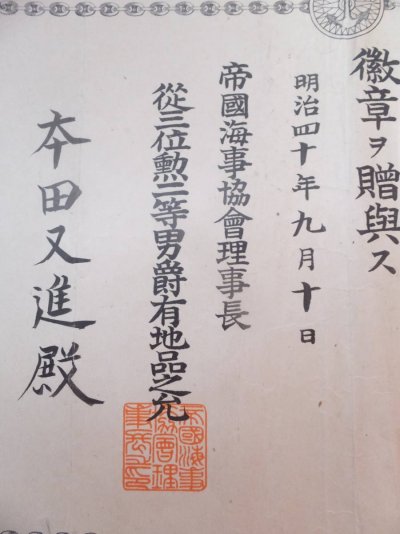 徽章ヲ贈與ス
明治四十年九月十日
帝國海事協會理事長
從三位勲二等男爵有地品之允
本田又進殿
帝國海事
協會理
事長之印